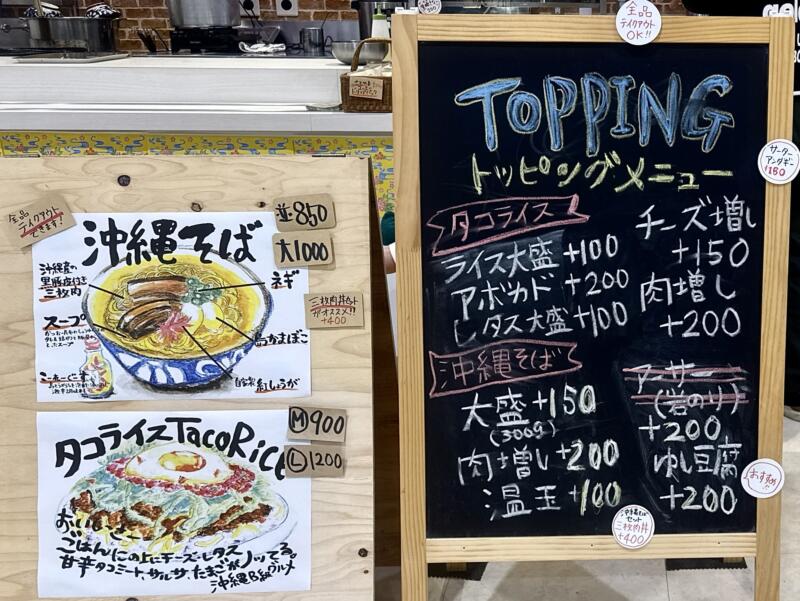 全品
テイクアウト
できます!
沖縄そば
並850
大1000
沖縄産の
黒豚皮付き
三枚肉
ネギ
スープ
かまぼこ
自家製
紅しょうが
三枚肉丼セット
がオススメ!!
+400
タコライス TacoRice
M900
L1200
おいしーどー
ごはんの上にチーズ・レタス
甘辛タコミート、サルサ、たまごがノッてる。
沖縄B級グルメ
全品
テイクアウト
OK!!
TOPPING
トッピングメニュー
サーター
アンダギー
¥150
タコライス
ライス大盛 +100
アボカド +200
レタス大盛 +100
チーズ増し
+150
肉増し
+200
沖縄そば
大盛 +150
(300g)
肉増し +200
温玉 +100
アーサー
(岩のり)
+200
ゆし豆腐
+200
おすすめ!!
沖縄そば
セット
三枚肉丼
+400